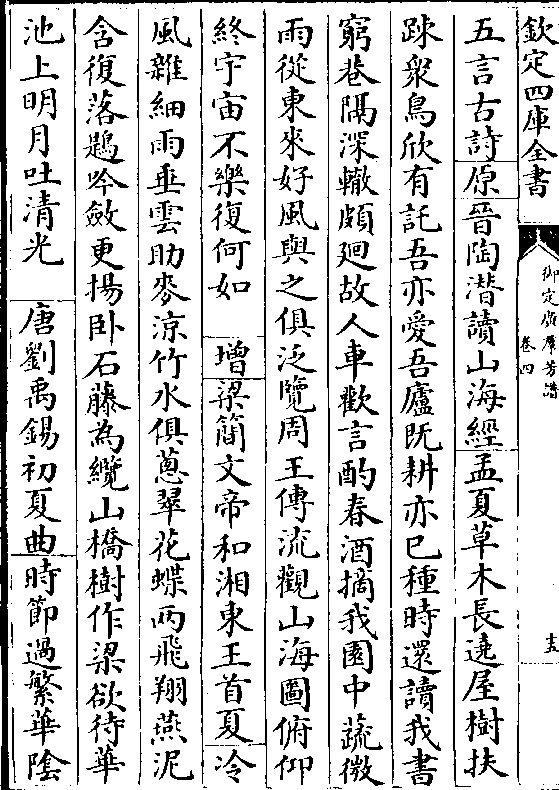 欽定四庫全書
御定廣羣芳譜
卷四
十五
五言古詩原晉陶潛讀山海經孟夏草木長遶屋樹扶
踈衆鳥欣有託吾亦愛吾廬既耕亦已種時還讀我書
窮巷隔深轍頗廻故人車歡言酌春酒摘我園中蔬微
雨從東來好風與之俱泛覽周王傳流觀山海圖俯仰
終宇宙不樂復何如 增梁簡文帝和湘東王首夏冷
風雜細雨垂雲助麥涼竹水俱蔥翠花蝶兩飛翔燕泥
含復落鶗吟斂更揚卧石藤為纜山橋樹作梁欲待華
池上明月吐清光 唐劉禹錫初夏曲時節過繁華陰